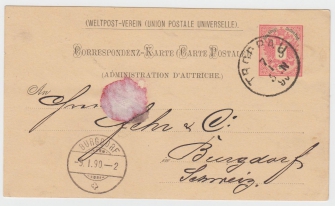 (WELTPOST-VEREIN (UNION POSTALE UNIVERSELLE)
CORRESPONDENZ-KARTE (CARTE POSTALE
(ADMINISTRATION D'AUTRICHE)
TROPPAU
An
Herren
Fehr & C:
in
Burgdorf
Schweiz.
BURGDORF
9.I.90-2